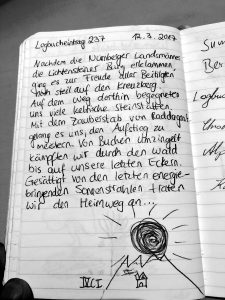 Logbucheintrag 237 12.3.2017
Nachdem die Nürnberger Landsmänner
die Lichtensteiner Burg erklommen,
ging es zur Freude aller Beteiligten
steil auf den Kreuzberg.
Auf dem Weg dorthin begegneten
uns viele keltische Steinstätten.
Mit dem Zauberstab von Raddagast
gelang es uns, den Aufstieg zu
meistern. Von Buchen umzingelt
kämpften wir durch den Wald
bis auf unsere letzten Eckern.
Gesättigt von den letzten energie-
bringenden Sonnenstrahlen traten
wir den Heimweg an...
Logbuch